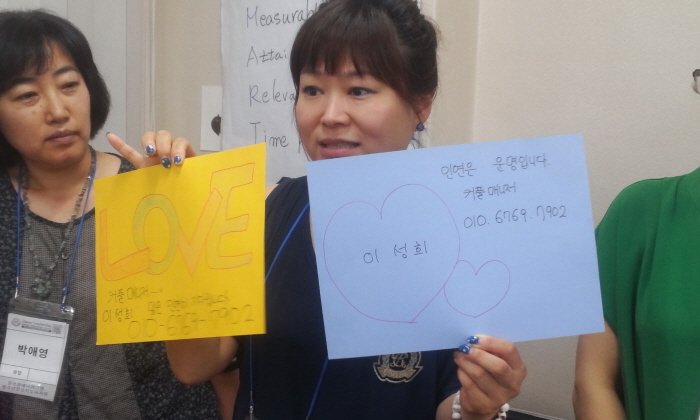 Measurab
Atta
Releva
Time
LOVE
커플매니저
이성희
010-6769-7902
인연은 운명입니다.
커플매니저
010.6769.7902
이성희
박애영